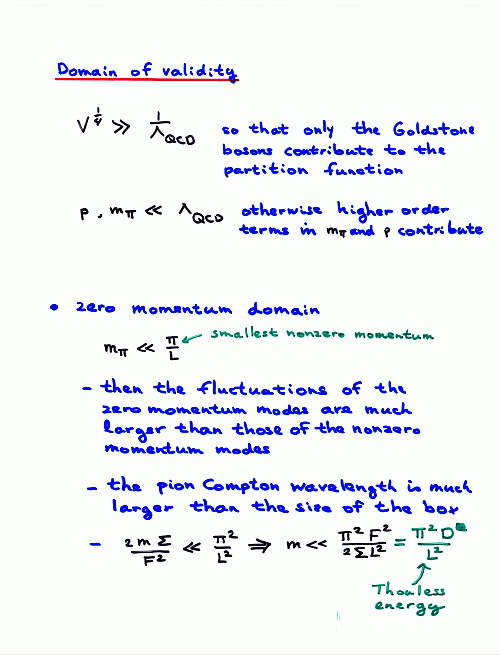 Domain of validity
V^{1/4} >> 1/Λ_QCD so that only the Goldstone
bosons contribute to the
partition function
p, m_π << Λ_QCD otherwise higher order
terms in m_π and p contribute
• zero momentum domain
m_π << π/L ← smallest nonzero momentum
- then the fluctuations of the
zero momentum modes are much
larger than those of the nonzero
momentum modes
- the pion Compton wavelength is much
larger than the size of the box
- 2mΣ/F² << π²/L² ⇒ m << π²F²/2ΣL² = π²D/L²
Thouless
energy